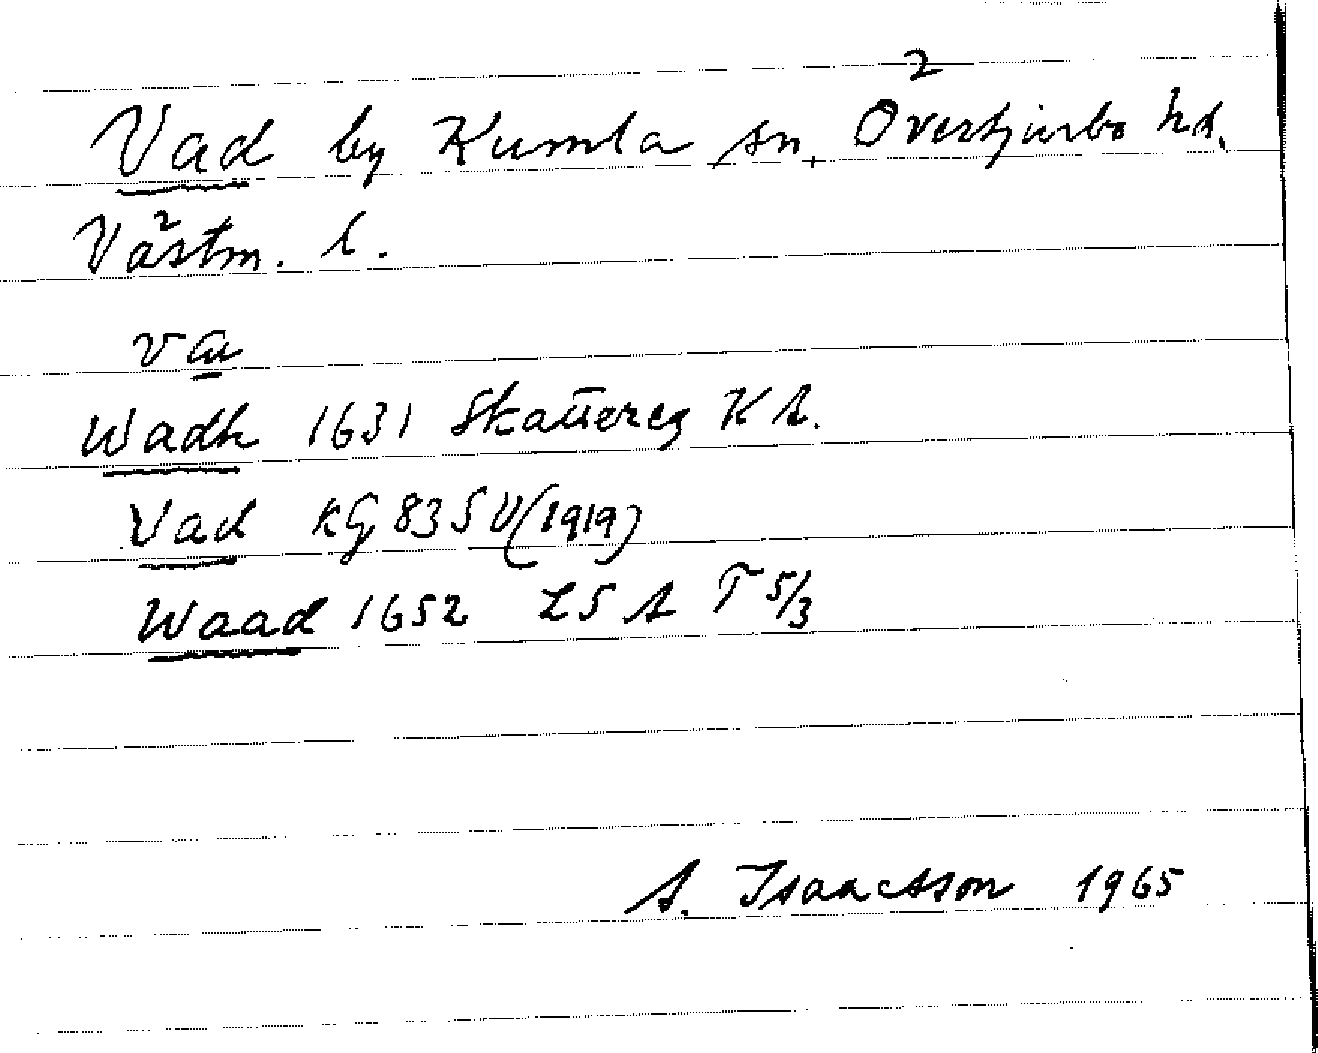 Vad by Kumla sn, Övertjurbo hd.
Västm. l.
va
Wadh 1631 Skattereg KA.
Vad KG 83 SV (1919)
Waad 1652 LSA T 5/3
A. Isaacsson 1965